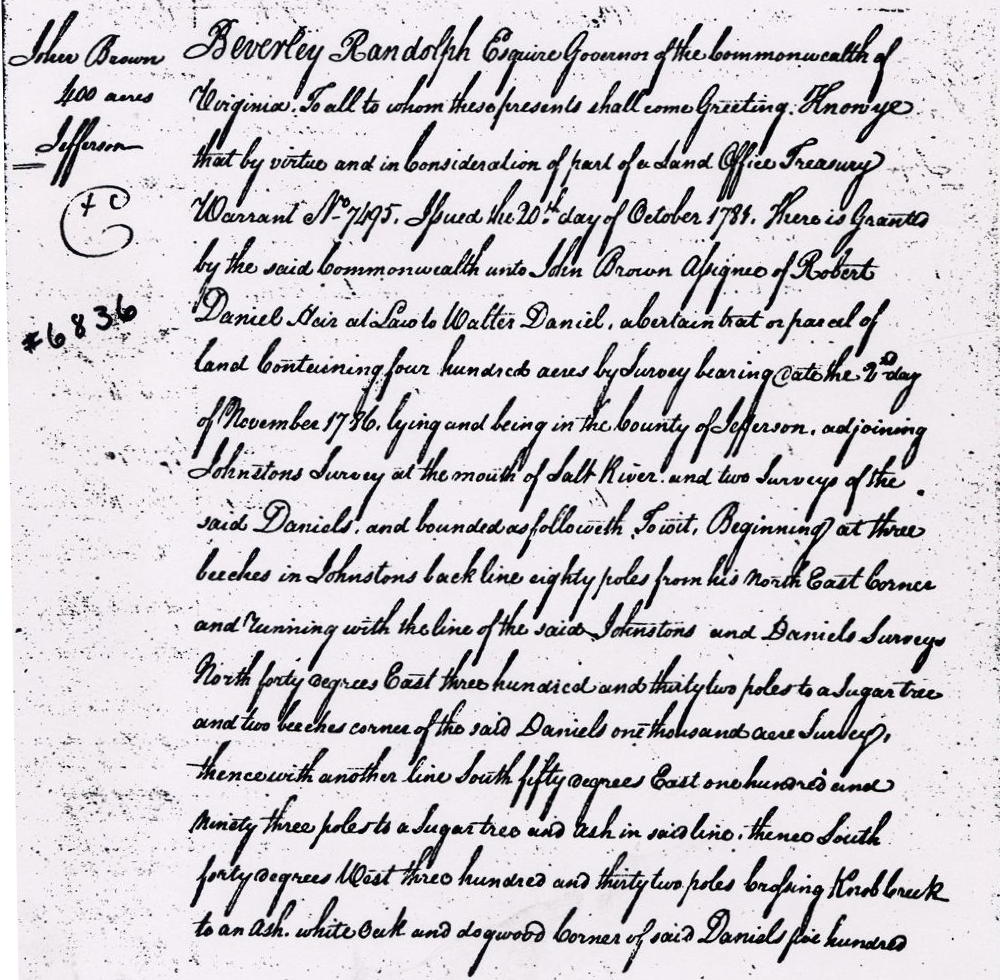 John Brown
400 acres
Jefferson
#6836
Beverley Randolph Esquire Governor of the Commonwealth of
Virginia. To all to whom these presents shall come Greeting. Know ye
that by virtue and in Consideration of part of a Land Office Treasury
Warrant No. 7495. Issued the 20th day of October 1781. There is Granted
by the said Commonwealth unto John Brown Assignee of Robert
Daniel Heir at Law to Walter Daniel, a Certain trat or parcel of
land Containing four hundred acres by Survey bearing date the 2nd day
of November 1786. lying and being in the County of Jefferson. adjoining
Johnstons Survey at the mouth of Salt River. and two Surveys of the
said Daniels. and bounded as followeth, To wit, Beginning at three
beeches in Johnstons back line eighty poles from his North East Corner
and running with the line of the said Johnstons and Daniels Surveys
North forty degrees East three hundred and thirty two poles to a Sugar tree
and two beeches corner of the said Daniels one thousand acre Survey,
thence with another line South fifty degrees East one hundred and
ninety three poles to a Sugar tree and ash in said line. thence South
forty degrees West three hundred and thirty two poles Crossing Knob Creek
to an Ash. white Oak and dogwood Corner of said Daniels five hundred